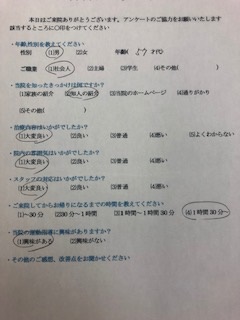 本日はご来院ありがとうございます。アンケートのご協力をお願いいたします
該当するところに〇印をつけてください
・年齢,性別を教えてください
性別 (1)男 (2)女 年齢( 5 代)
ご職業 (1)社会人 (2)主婦 (3)学生 (4)その他( )
・当院を知ったきっかけは何ですか?
(1)家族の紹介 (2)知人の紹介 (3)当院のホームページ (4)通りがかり
(5)その他( )
・治療内容はいかがでしたか?
(1)大変良い (2)良い (3)普通 (4)悪い (5)よくわからない
・院内の雰囲気はいかがでしたか?
(1)大変良い (2)良い (3)普通 (4)悪い
・スタッフの対応はいかがでしたか?
(1)大変良い (2)良い (3)普通 (4)悪い
・ご来院してからお帰りになるまでの時間を教えてください
(1)~30分 (2)30分~1時間 (3)1時間~1時間30分 (4)1時間30分~
・当院の運動指導に興味がありますか?
(1)興味がある (2)興味がない
・その他のご感想、改善点をお聞かせください